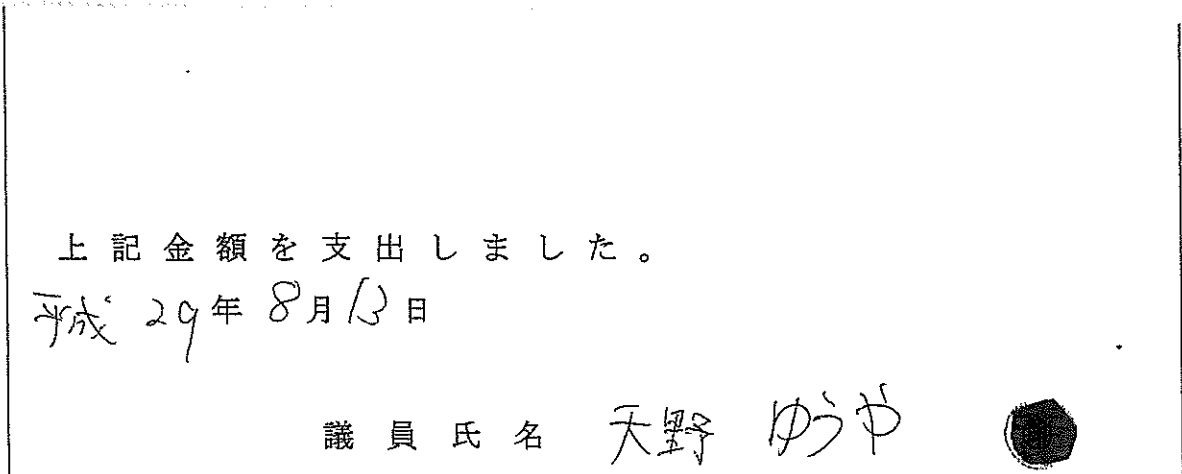 上記金額を支出しました。
平成 29年 8月 13日
議員氏名 天野 ゆうや